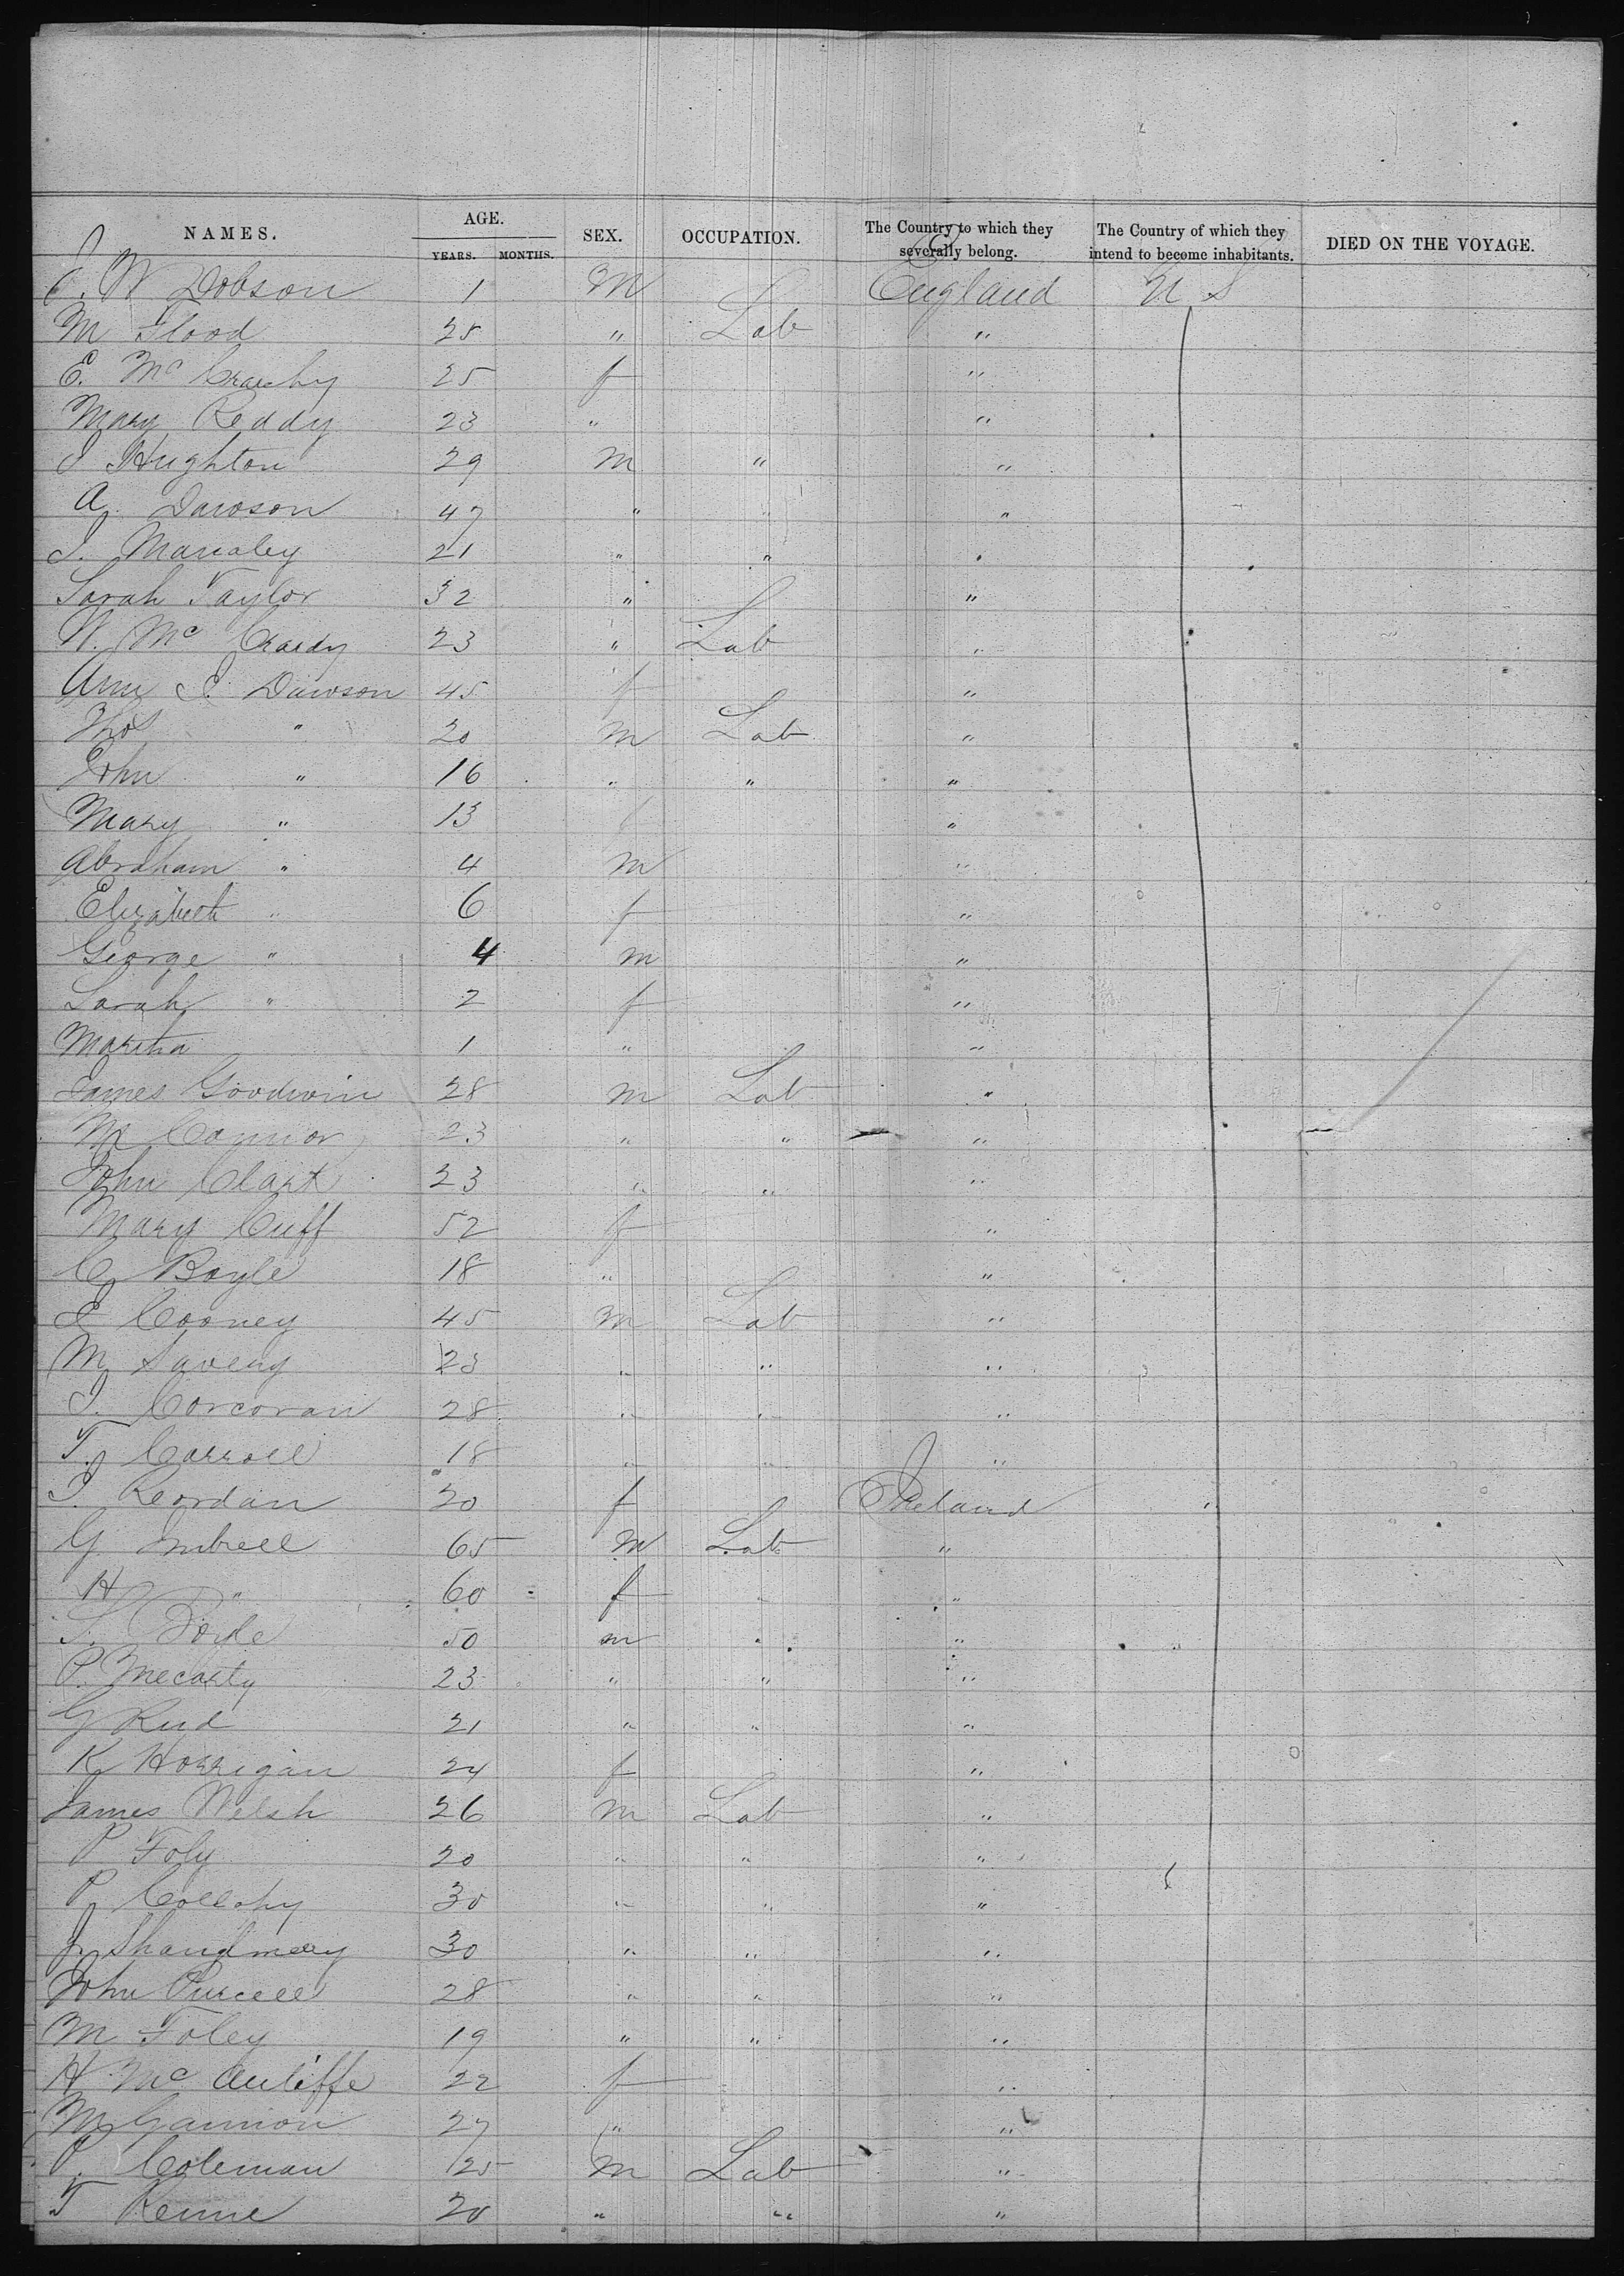 NAMES. AGE. SEX. OCCUPATION. The Country to which they severally belong. The Country of which they intend to become inhabitants. DIED ON THE VOYAGE.
YEARS. MONTHS.
J. W Dobson 1 M England U S
M Flood 25 " Lab "
E. Mc 25 f "
Mary Reddy 23 " "
J Hughton 29 m " "
A. Dawson 47 " " "
J. 21 " " "
Sarah Taylor 32 " "
W. Mc 23 " Lab "
Ann J. Dawson 45 f "
Thos " 20 m Lab "
John " 16 " " "
Mary " 13 f "
Abraham " 4 m "
Elizabeth " 6 f "
George " 4 m "
Sarah " 2 f "
Martha 1 " "
James Goodwin 28 m Lab "
M Connor 23 " " "
John Clark 23 " " "
Mary Cuff 52 f "
C Boyle 18 " "
J Cooney 45 m Lab "
M 23 " " "
J. Corcoran 28 " " "
T. Carroll 18 " " "
J. Reordan 20 f Ireland "
G 65 m Lab "
H " 60 f "
50 m " "
P. Mecarty 23 " " "
G Reid 21 " " "
K Horrigan 24 f "
James Welsh 26 m Lab "
P Foly 20 " " "
P. 30 " " "
J. 30 " " "
John Purcell 28 " " "
M Foley 19 " " "
H Mc Auliffe 22 f "
M Gannon 27 " "
P. Coleman 25 m Lab "
T 20 " " "